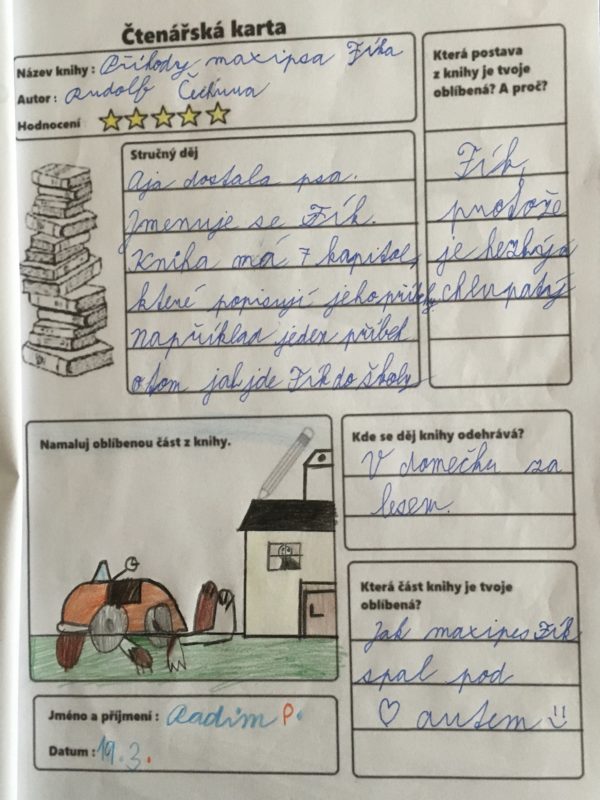 Čtenářská karta
Název knihy : Příhody maxipsa Fíka
Autor : Rudolf Čechura
Hodnocení
Která postava
z knihy je tvoje
oblíbená? A proč?
Fík,
protože
je hezký a
chlupatý
Stručný děj
Aja dostala psa.
Jmenuje se Fík.
Kniha má 7 kapitol,
které popisují jeho příběhy
například jeden příběh
o tom jak jde Fík do školy
Namaluj oblíbenou část z knihy.
Kde se děj knihy odehrává?
V domečku za
lesem.
Která část knihy je tvoje
oblíbená?
Jak maxipes Fík
spal pod
autem
Jméno a příjmení : Radim P.
Datum : 19.3.